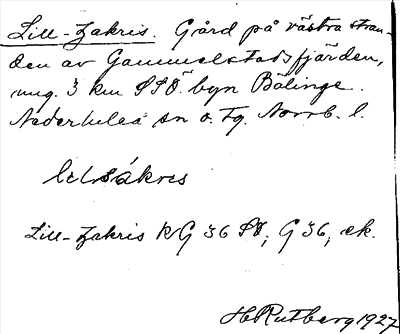 Lill-Zakris. Gård på västra stran-
den av Gammelstadsfjärden,
ung. 3 km SSÖ. byn Bälinge.
Nederluleå sn o. tg. Norrb. l.
Lill-Zakris RG 36 SÖ; G 36, ek.
H Rutberg 1927